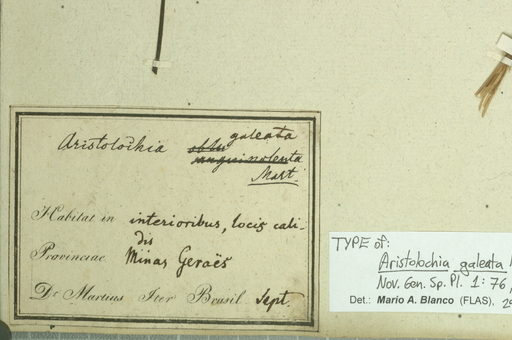 Aristolochia galeata
Mart.
Habitat in interioribus, locis cali-
dis
Provinciae Minas Geraës
Dr Martius Iter Brasil. Sept.
TYPE of:
Aristolochia galeata
Nov. Gen. Sp. Pl. 1: 76,
Det.: Mario A. Blanco (FLAS).